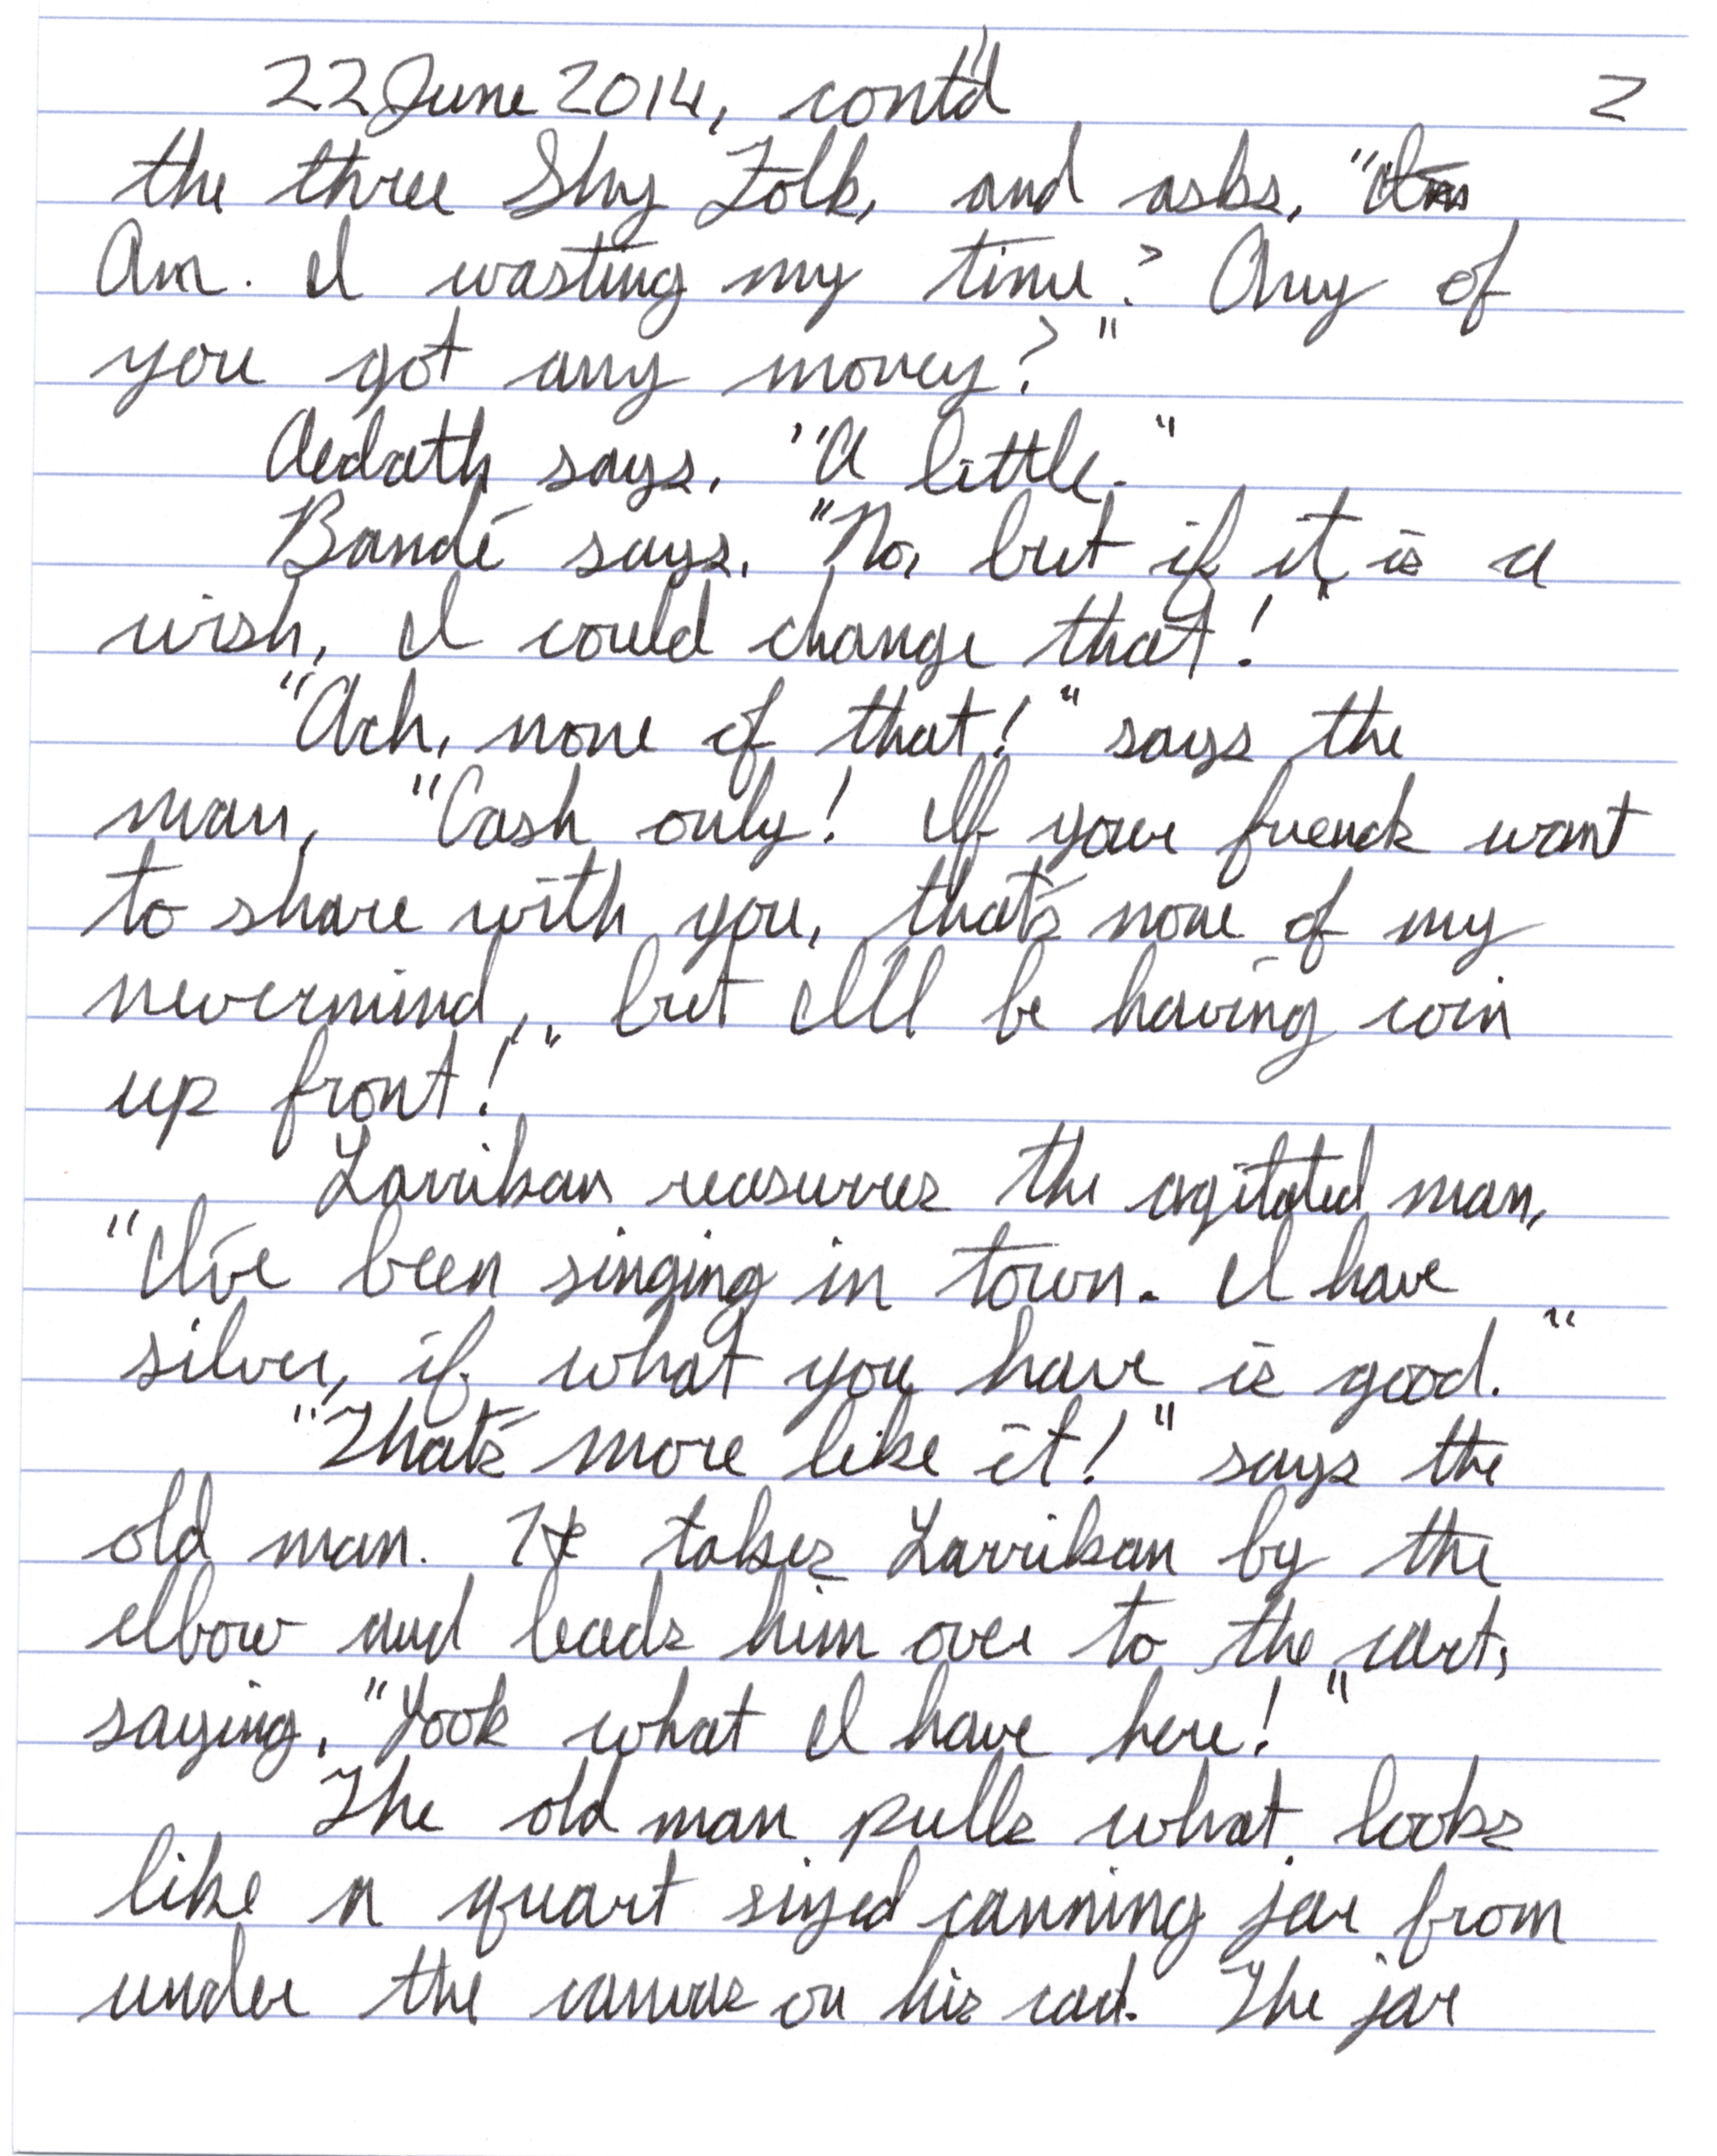 22 June 2014, cont'd 2
the three Shy Folk, and asks, "
Am. I wasting my time? Any of
you got any money?"
Aedath says, "A little."
Bandé says, "No, but if it is a
wish, I could change that!"
"Ach, none of that!" says the
man, "Cash only! If your friends want
to share with you, that's none of my
nevermind, but I'll be having coin
up front!"
Larrikan reasurres the agitated man,
"I've been singing in town. I have
silver, if what you have is good."
"That's more like it!" says the
old man. He takes Larrikan by the
elbow and leads him over to the cart,
saying, "Look what I have here!"
The old man pulls what looks
like a quart sized canning jar from
under the canvas on his cart. The jar